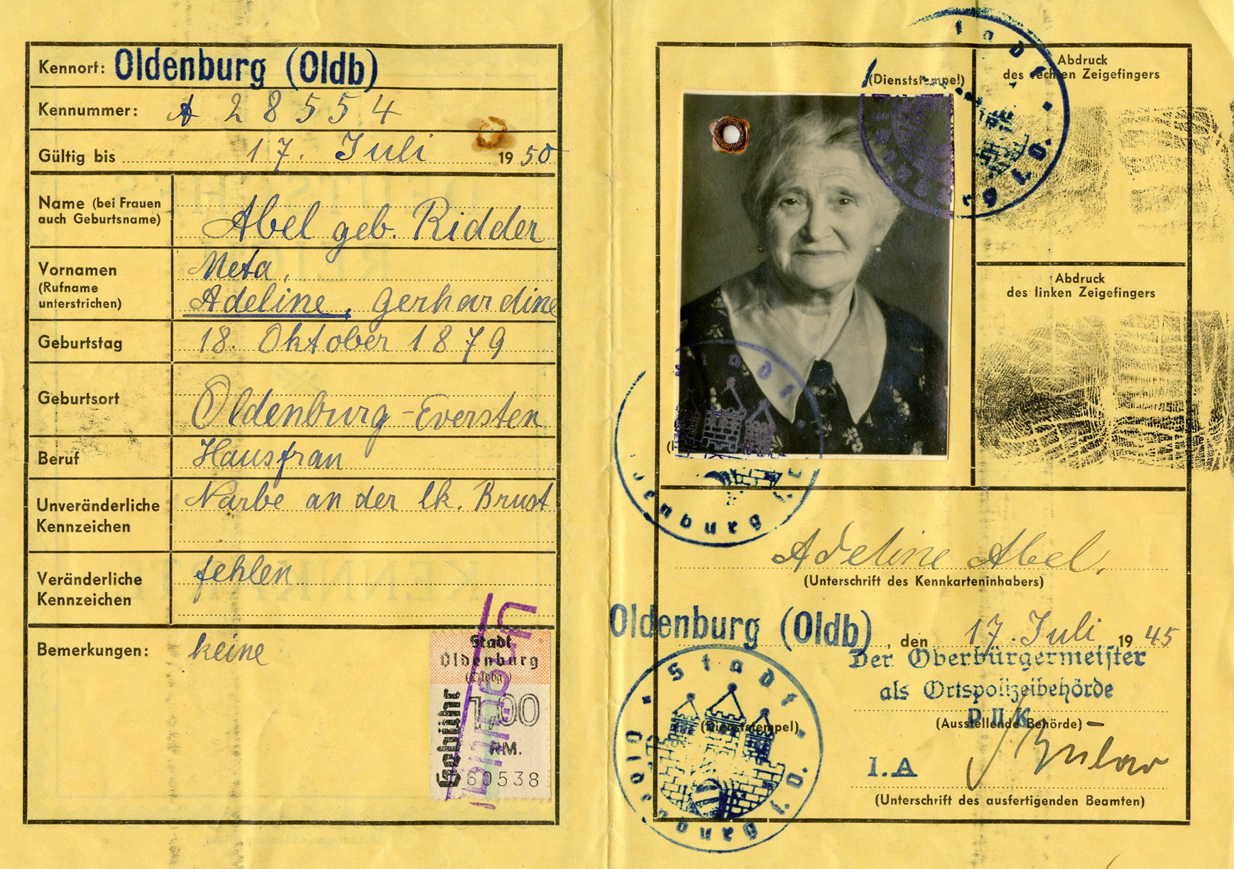 Kennort: Oldenburg (Oldb)
Kennummer: A 28554
Gültig bis 17. Juli 1950
Name (bei Frauen auch Geburtsname)
Abel geb. Ridder
Vornamen (Rufname unterstrichen)
Meta,
Adeline, Gerhardine
Geburtstag 18. Oktober 1879
Geburtsort Oldenburg-Eversten
Beruf Hausfrau
Unveränderliche Kennzeichen Narbe an der lk. Brust
Veränderliche Kennzeichen fehlen
Bemerkungen: keine
Stadt
Oldenburg
(Oldbg)
Gebühr
1.00
RM.
60538
(Dienststempel)
Abdruck
des rechten Zeigefingers
Abdruck
des linken Zeigefingers
Adeline Abel.
(Unterschrift des Kennkarteninhabers)
Oldenburg (Oldb), den 17. Juli 1945
Der Oberbürgermeister
als Ortspolizeibehörde
(Ausstellende Behörde)
(Dienststempel)
Stadt Oldenburg i.O.
I.A
(Unterschrift des ausfertigenden Beamten)